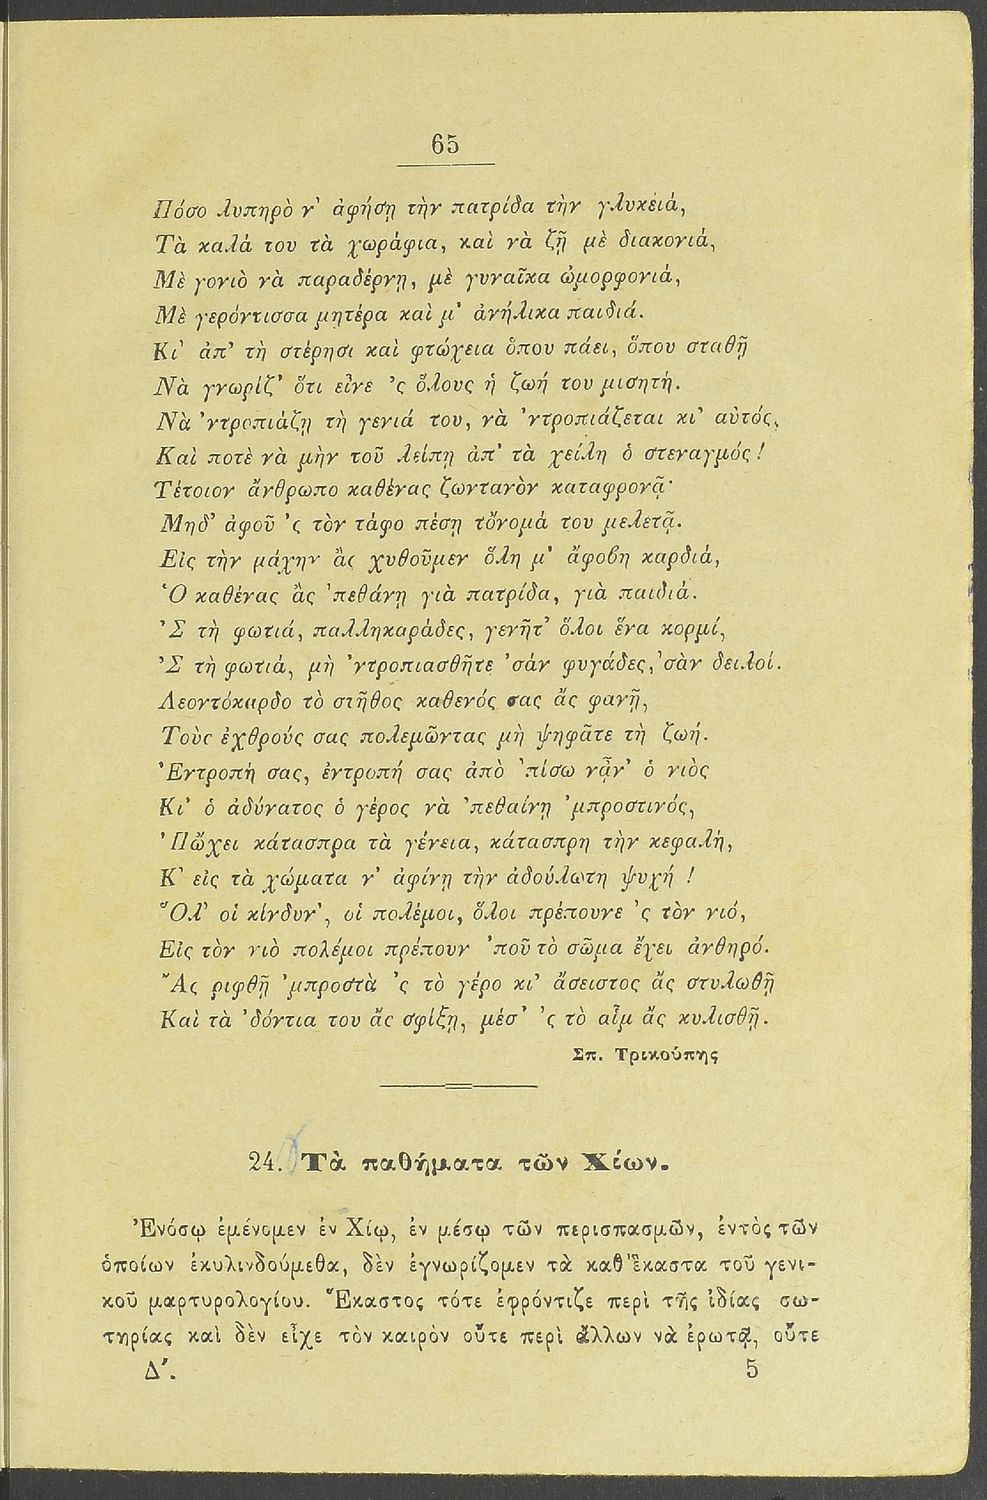 65
Πόσο λυπηρὸ ν' ἀφήσῃ τὴν πατρίδα τὴν γλυκειά,
Τὰ καλά του τὰ χωράφια, καὶ νὰ ζῇ μὲ διακονιά,
Μὲ γονιὸ νὰ παραδέρνῃ, μὲ γυναῖκα ὠμορφονιά,
Μὲ γερόντισσα μητέρα καὶ μ' ἀνήλικα παιδιά.
Κι' ἀπ' τὴ στέρησι καὶ φτώχεια ὅπου πάει, ὅπου σταθῇ
Νὰ γνωρίζ' ὅτι εἶνε 'ς ὅλους ἡ ζωή του μισητή.
Νὰ 'ντροπιάζῃ τὴ γενιά του, νὰ 'ντροπιάζεται κι' αὐτός,
Καὶ ποτὲ νὰ μὴν τοῦ λείπῃ ἀπ' τὰ χείλη ὁ στεναγμός!
Τέτοιον ἄνθρωπο καθένας ζωντανὸν καταφρονᾷ·
Μηδ' ἀφοῦ 'ς τὸν τάφο πέσῃ τὄνομά του μελετᾷ.
Εἰς τὴν μάχην ἂς χυθοῦμεν ὅλη μ' ἄφοβη καρδιά,
Ὁ καθένας ἂς 'πεθάνῃ γιὰ πατρίδα, γιὰ παιδιά.
'Σ τὴ φωτιά, παλληκαράδες, γενῆτ' ὅλοι ἕνα κορμί,
'Σ τὴ φωτιά, μὴ 'ντροπιασθῆτε 'σὰν φυγάδες, 'σὰν δειλοί.
Λεοντόκαρδο τὸ στῆθος καθενός σας ἂς φανῇ,
Τοὺς ἐχθρούς σας πολεμῶντας μὴ ψηφᾶτε τὴ ζωή.
Ἐντροπή σας, ἐντροπή σας ἀπὸ 'πίσω νᾆν' ὁ νιὸς
Κι' ὁ ἀδύνατος ὁ γέρος νὰ 'πεθαίνῃ 'μπροστινός,
'Πὤχει κάτασπρα τὰ γένεια, κάτασπρη τὴν κεφαλή,
Κ' εἰς τὰ χώματα ν' ἀφίνῃ τὴν ἀδούλωτη ψυχή!
Ὅλ' οἱ κίνδυν', οἱ πολέμοι, ὅλοι πρέπουνε 'ς τὸν νιό,
Εἰς τὸν νιὸ πολέμοι πρέπουν 'ποῦ τὸ σῶμα ἔχει ἀνθηρό.
Ἂς ριφθῇ 'μπροστὰ 'ς τὸ γέρο κι' ἄσειστος ἂς στυλωθῇ
Καὶ τὰ 'δόντια του ἂς σφίξῃ, μέσ' 'ς τὸ αἷμ ἂς κυλισθῇ.
Σπ. Τρικούπης
24. Τὰ παθήματα τῶν Χίων.
Ἐνόσῳ ἐμένομεν ἐν Χίῳ, ἐν μέσῳ τῶν περισπασμῶν, ἐντὸς τῶν
ὁποίων ἐκυλινδούμεθα, δὲν ἐγνωρίζομεν τὰ καθ' ἕκαστα τοῦ γενι-
κοῦ μαρτυρολογίου. Ἕκαστος τότε ἐφρόντιζε περὶ τῆς ἰδίας σω-
τηρίας καὶ δὲν εἶχε τὸν καιρὸν οὔτε περὶ ἄλλων νὰ ἐρωτᾷ, οὔτε
Δ'. 5